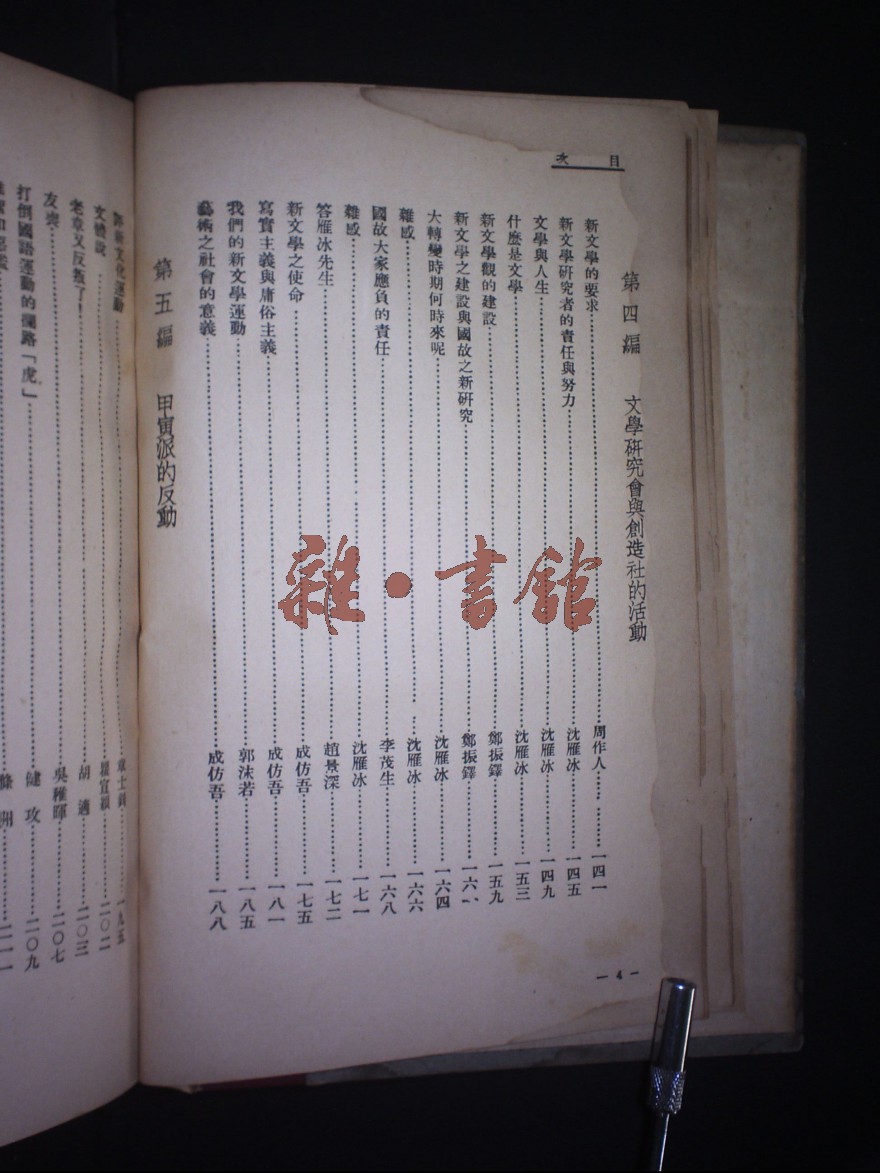 目 次
第四編 文學研究會與創造社的活動
新文學的要求 周作人 一四一
新文學研究者的責任與努力 沈雁冰 一四五
文學與人生 沈雁冰 一四九
什麽是文學 沈雁冰 一五三
新文學觀的建設 鄭振鐸 一五九
新文學之建設與國故之新研究 鄭振鐸 一六
大轉變時期何時來呢 沈雁冰 一六四
雜感 沈雁冰 一六六
國故大家應負的責任 李茂生 一六八
雜感 沈雁冰 一七一
答雁冰先生 趙景深 一七二
新文學之使命 成仿吾 一七五
寫實主義與庸俗主義 成仿吾 一八一
我們的新文學運動 郭沫若 一八五
藝術之社會的意義 成仿吾 一八八
第五編 甲寅派的反動
評新文化運動 章士釗 一九五
文體說 瞿宣穎 二〇二
老章又反叛了！ 胡適 二〇三
友喪 吳稚暉 二〇七
打倒國語運動的攔路「虎」 健攻 二〇九
二一一
— 4 —
雜·書館